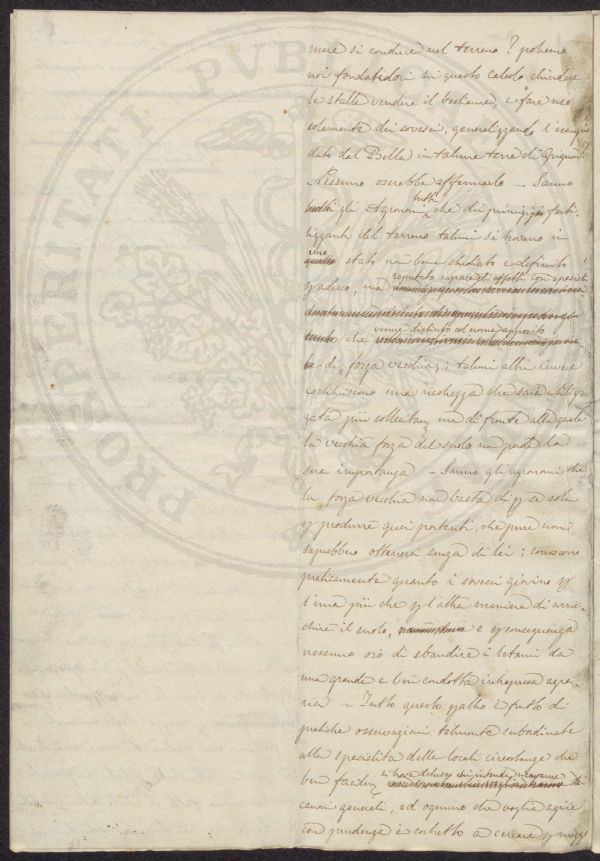 mare si conduce nel terreno? potremo
noi fondandoci su questo calcolo chiudere
le stalle vendere il bestiame, e fare uso
solamente dei sovesci, generalizzando l'esempio
dato dal Bella in talune terre di Grignon?
Nessuno oserebbe affermarlo – Sanno
tutti
molti gli Agronomi che dei principii ferti-
lizzanti del terreno taluni si trovano in
uno
stato non bene studiato e definito
reputato capace di effetti con speciali
adesso, ma
venne distinto col nome apposito
che
di "forza vecchia"; taluni altri invece
costituiscono una ricchezza che sarà utiliz-
zata più sollecitam. ma di fronte alla quale
la vecchia forza del suolo non perde la
sua importanza – Sanno gli agronomi che
la forza vecchia non basta di p se sola
p produrre quei portenti, che pure non
saprebbero ottenersi senza di lei; conoscono
praticamente quanto i sovesci giovino p
l'una più che p l'altra maniera di arric-
chire il suolo, e p conseguenza
nessuno osò di sbandire i letami da
una grande e ben condotta intrapresa agra-
ria – Tutto questo è frutto di
pratiche osservazioni talmente subordinate
alla specialità delle locali circostanze che
si trova deluso chi intende ricavarne
ben facilm. dei
canoni generali, ed ognuno che voglia agire
con prudenza è costretto a cercare p mezzo
PROSPERITATI PVBLICAE